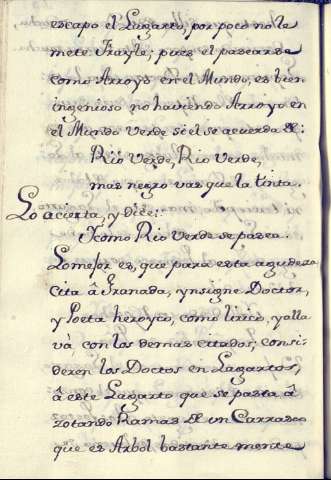 escapo el Lugarto, por poco no le
mete Frayle; pues el pasearse
como Arroyo en el Mundo, es bien
ingenioso no haviendo Arroyo en
el Mundo Verde si el se acuerda &:
Rio Verde, Rio Verde,
mas negro vas que la tinta.
Lo acierta, y dice:
Y como Rio Verde se pasea.
Lo mejor es, que para esta agudeza
cita â Granada, ynsigne Doctor,
y Poeta heroyco, como lirico, y alla
và, con los demas citados; consi-
deren los Doctos en Lagartos,
â este Lagarto que se pasea â
zotando Ramas de un Carrasco
que es Arbol bastante mente